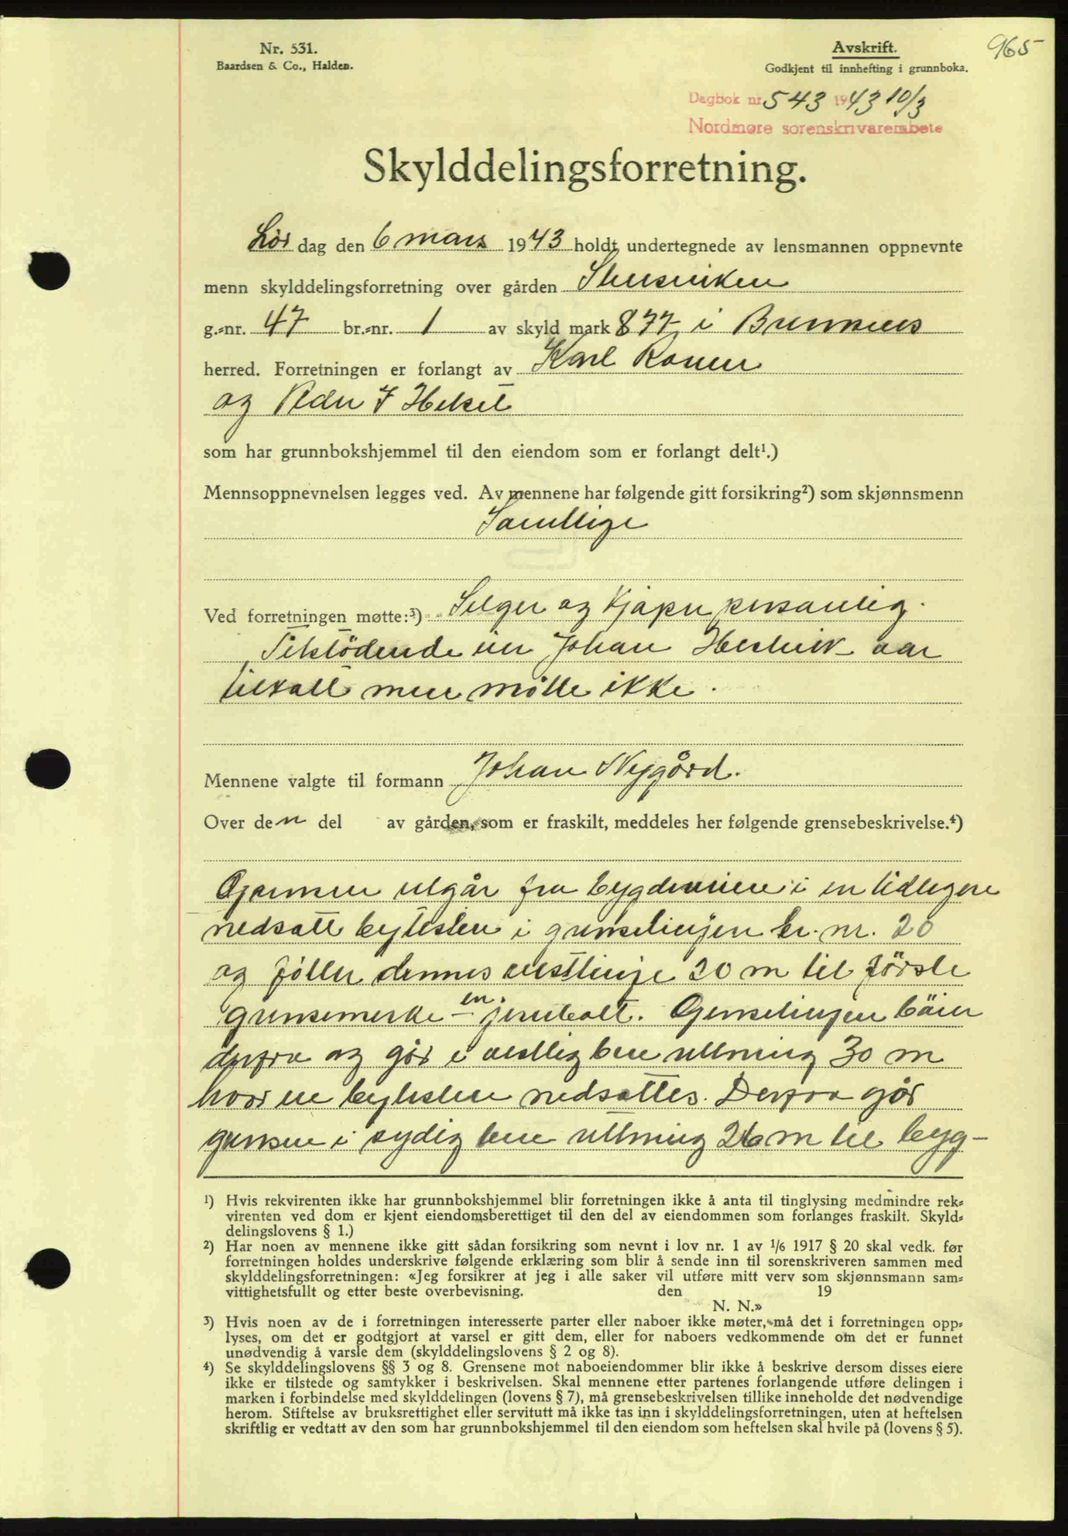 965
Nr. 531.
Baardsen & Co., Halden.
Avskrift.
Godkjent til innhefting i grunnboka.
Dagbok nr 543 1943 10/3
Nordmøre sorenskrivarembete
Skylddelingsforretning.
Lør dag den 6 mars 1943 holdt undertegnede av lensmannen oppnevnte
menn skylddelingsforretning over gården
g.-nr. 47 br.-nr. 1 av skyld mark 877 i Bremsnes
herred. Forretningen er forlangt av Karl
og Peder J
som har grunnbokshjemmel til den eiendom som er forlangt delt¹.)
Mennsoppnevnelsen legges ved. Av mennene har følgende gitt forsikring²) som skjønnsmenn
Samtlige
Ved forretningen møtte:³) Selger og kjøper personlig.
Tilstödende eier Johan var
tilkalt men mötte ikke.
Mennene valgte til formann Johan Nygård.
Over den del av gården, som er fraskilt, meddeles her følgende grensebeskrivelse.⁴)
Grensen utgår fra bygdeveien i en tidligere
nedsatt bytesten i grenselinjen br. nr. 20
og föller dennes vestlinje 20 m til förste
grensemerke – en jernbolt. Grenselinjen böier
derfra og går i vestlig bene retning 30 m
hvor en bytesten nedsattes. Derfra går
grensen i sydig bene retning 26 m til byg-
¹) Hvis rekvirenten ikke har grunnbokshjemmel blir forretningen ikke å anta til tinglysing medmindre rek-
virenten ved dom er kjent eiendomsberettiget til den del av eiendommen som forlanges fraskilt. Skyld-
delingslovens § 1.)
²) Har noen av mennene ikke gitt sådan forsikring som nevnt i lov nr. 1 av 1/6 1917 § 20 skal vedk. før
forretningen holdes underskrive følgende erklæring som blir å sende inn til sorenskriveren sammen med
skylddelingsforretningen: «Jeg forsikrer at jeg i alle saker vil utføre mitt verv som skjønnsmann sam-
vittighetsfullt og etter beste overbevisning. den 19
N. N.»
³) Hvis noen av de i forretningen interesserte parter eller naboer ikke møter, må det i forretningen opp-
lyses, om det er godtgjort at varsel er gitt dem, eller for naboers vedkommende om det er funnet
unødvendig å varsle dem (skylddelingslovens § 2 og 8).
⁴) Se skylddelingslovens §§ 3 og 8. Grensene mot naboeiendommer blir ikke å beskrive dersom disses eiere
ikke er tilstede og samtykker i beskrivelsen. Skal mennene etter partenes forlangende utføre delingen i
marken i forbindelse med skylddelingen (lovens § 7), må grensebeskrivelsen tillike inneholde det nødvendige
herom. Stiftelse av bruksrettighet eller servitutt må ikke tas inn i skylddelingsforretningen, uten at heftelsen
skriftlig er vedtatt av den som har grunnbokshjemmel til den eiendom som heftelsen skal hvile på (lovens § 5).